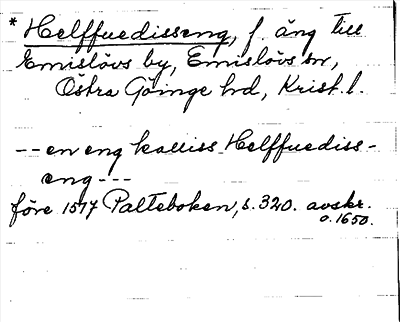 * Helffuedisseng, f. äng till
Emislövs by, Emislövs sn,
Östra Göinge hd, Krist. l.
-- en eng kalliss Helffuediss-
eng ---
före 1517 Palteboken, s. 320. avskr.
o. 1650.